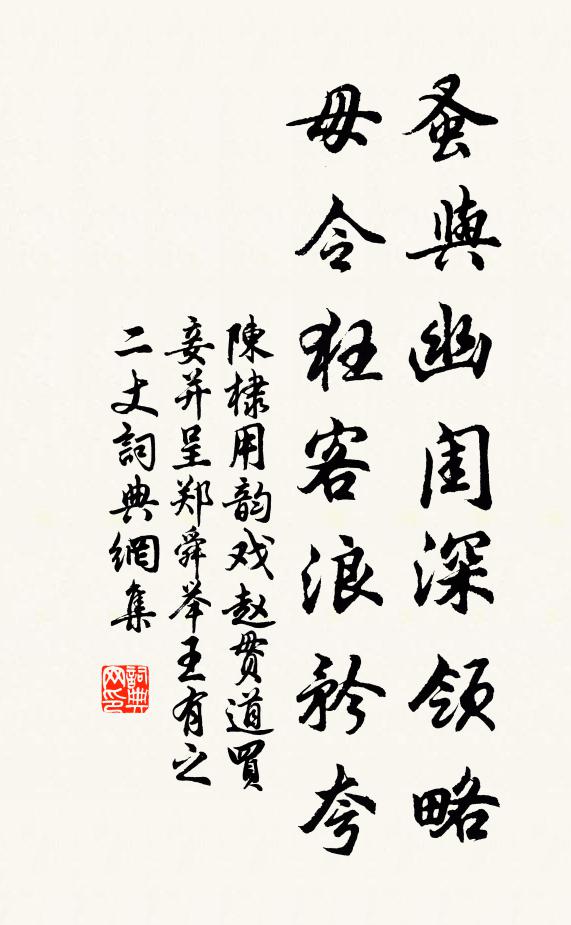 蚤與幽閨深領略
毋令狂客浪矜夸
陳棣用韵戏赵贯道買
妾并呈郑舜举王有之
二丈詞典網集
詞典网印